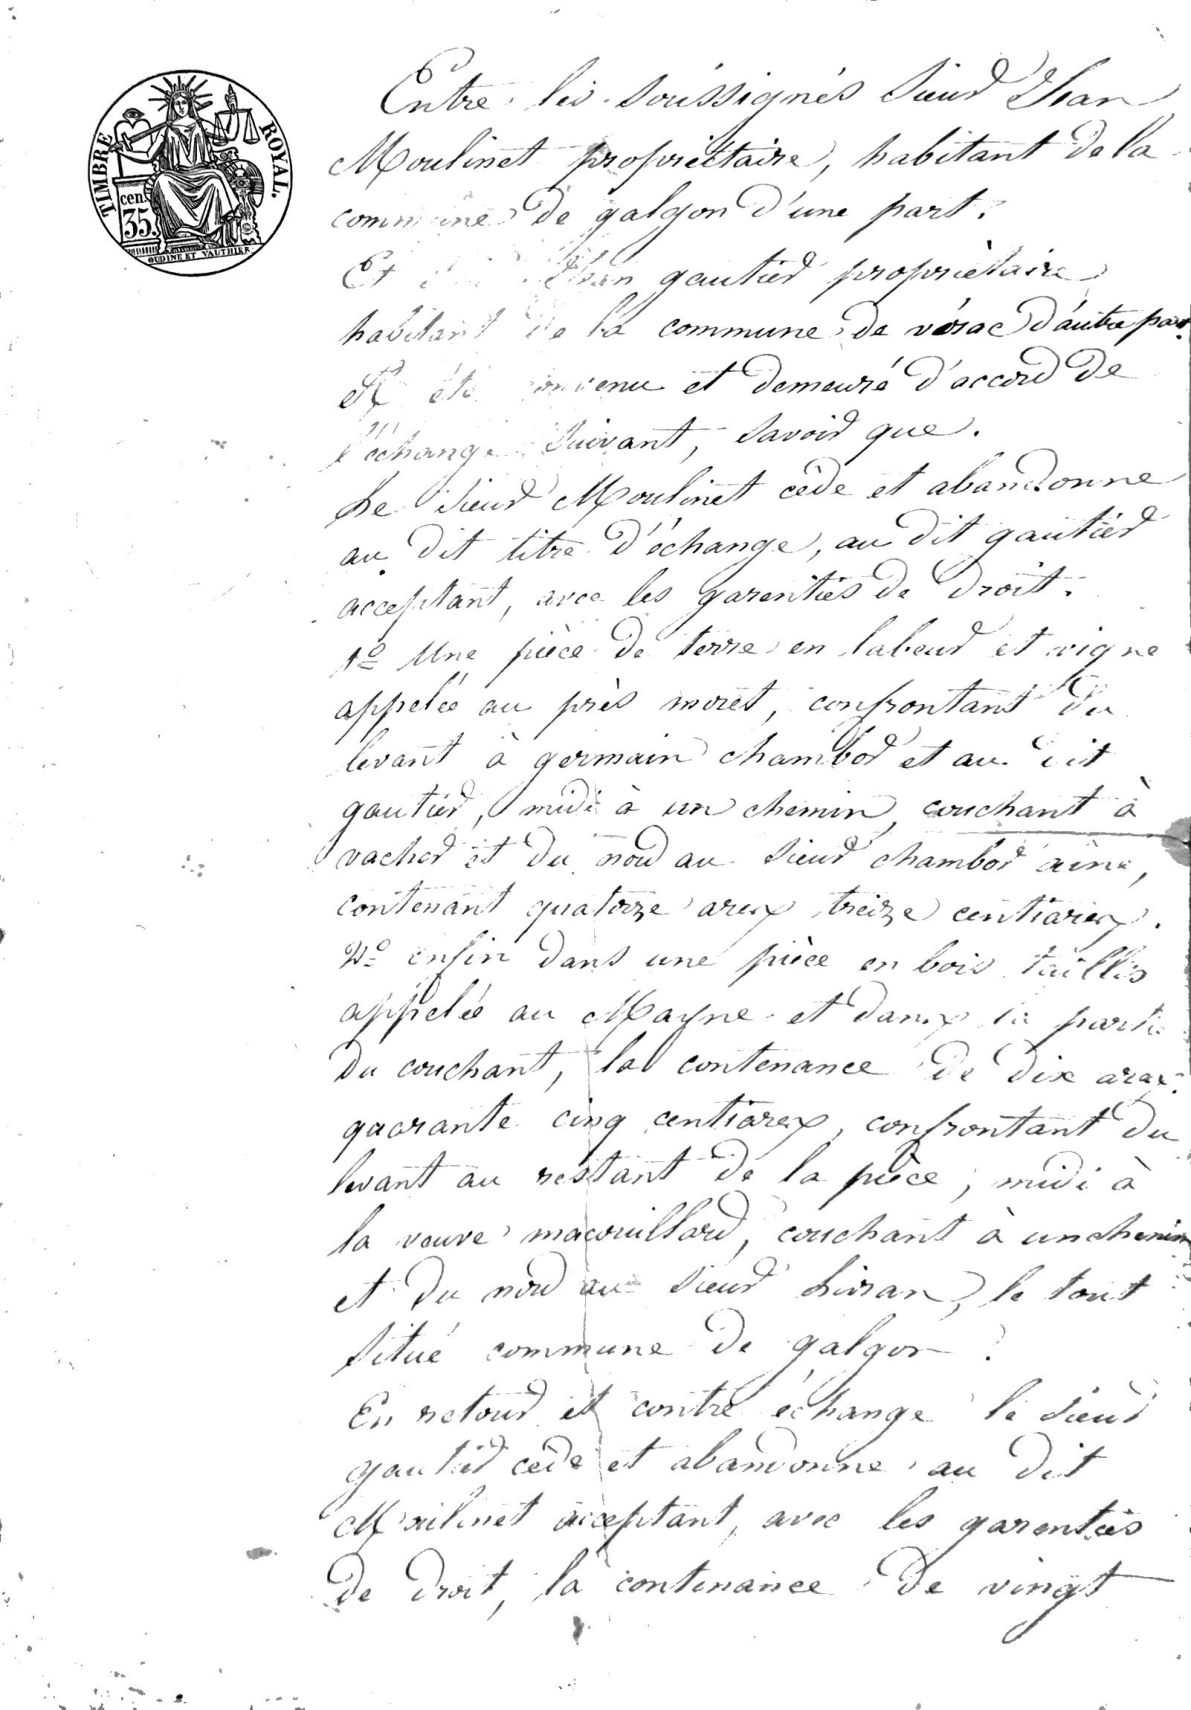 TIMBRE ROYAL.
cen.
35.
OUDINE ET VAUTHIER.
Entre les soussignés Sieur Jean
Moulinet propriétaire, habitant de la
commune de galgon d'une part.
Et Jean gautier propriètaire
habitant de la commune de vérac d'autre part.
A été convenu et demeuré d'accord de
l'échange suivant, savoir que.
Le sieur Moulinet cède et abandonne
au dit titre d'échange, au dit gautier
acceptant, avec les garenties de droit.
1º Une pièce de terre en labeur et vigne
appelée au près moret, confrontant du
levant à germain chambor et au dit
gautier, midi à un chemin, couchant à
vacher et du nord au sieur chambor ainé,
contenant quatorze arex treize centiarex.
2º enfin dans une pièce en bois taillis
appelé au Mayne et danx la partie
du couchant, la contenance de dix arex
quarante cinq centiarex, confrontant du
levant au restant de la pièce, midi à
la veuve macouillard, couchant à un chemin
et du nord au sieur Livran, le tout
situé commune de galgon.
En retour et contre échange le sieur
gautier cède et abandonne au dit
Moulinet acceptant, avec les garenties
de droit, la contenance de vingt